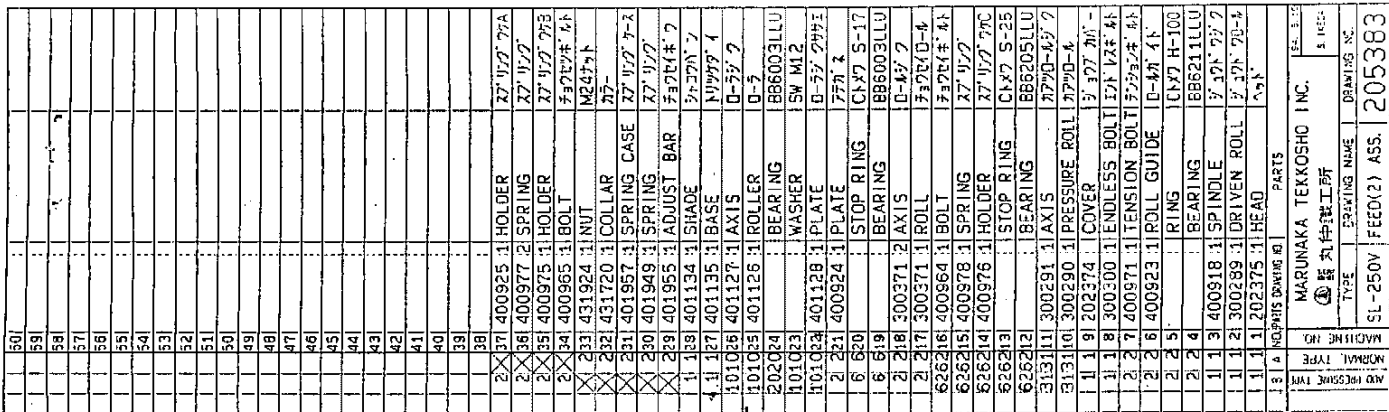 60
59
58
57
56
55
54
53
52
51
50
49
48
47
46
45
44
43
42
41
40
39
38
2 37 400925 1 HOLDER スプリング ウケA
2 36 400977 2 SPRING スプリング
2 35 400975 1 HOLDER スプリング ウケB
2 34 400965 1 BOLT チョウセツボルト
2 33 431924 1 NUT M24ナット
2 32 431720 1 COLLAR カラー
2 31 401957 1 SPRING CASE スプリング ケース
2 30 401949 1 SPRING スプリング
2 29 401955 1 ADJUST BAR チョウセイボウ
1 1 28 401134 1 SHADE
1 1 27 401135 1 BASE トリツケダイ
10 10 26 401127 1 AXIS ローラジク
10 10 25 401126 1 ROLLER ローラ
20 20 24 BEARING BB6003LLU
10 10 23 WASHER SW M12
10 10 22 401128 1 PLATE ローラジクササエ
2 2 21 400924 1 PLATE
6 6 20 STOP RING Cトメワ S-17
6 6 19 BEARING BB6003LLU
2 2 18 300371 2 AXIS ロールジク
2 2 17 300371 1 ROLL チョウセイロール
62 62 16 400964 1 BOLT チョウセイボルト
62 62 15 400978 1 SPRING スプリング
62 62 14 400976 1 HOLDER スプリング ウケC
62 62 13 STOP RING Cトメワ S-25
62 62 12 BEARING BB6205LLU
31 31 11 300291 1 AXIS カアツロールジク
31 31 10 300290 1 PRESSURE ROLL カアツロール
1 1 9 202374 1 COVER ジョウブ カバー
1 1 8 300300 1 ENDLESS BOLT エンドレスボルト
2 2 7 400971 1 TENSION BOLT テンションボルト
2 2 6 400923 1 ROLL GUIDE ロールガイド
2 2 5 RING Cトメワ H-100
2 2 4 BEARING BB6211LLU
1 1 3 400918 1 SPINDLE ジュウドウジク
1 1 2 300289 1 DRIVEN ROLL ジュウドウロール
1 1 1 202375 1 HEAD ヘッド
B A NO. PARTS DRAWING NO. PARTS
ADD PRESSURE TYPE
NORMAL TYPE
MACHINE NO.
MARUNAKA TEKKOSHO INC.
TYPE DRAWING NAME DRAWING NO.
SL-250V FEED(2) ASS. 205383